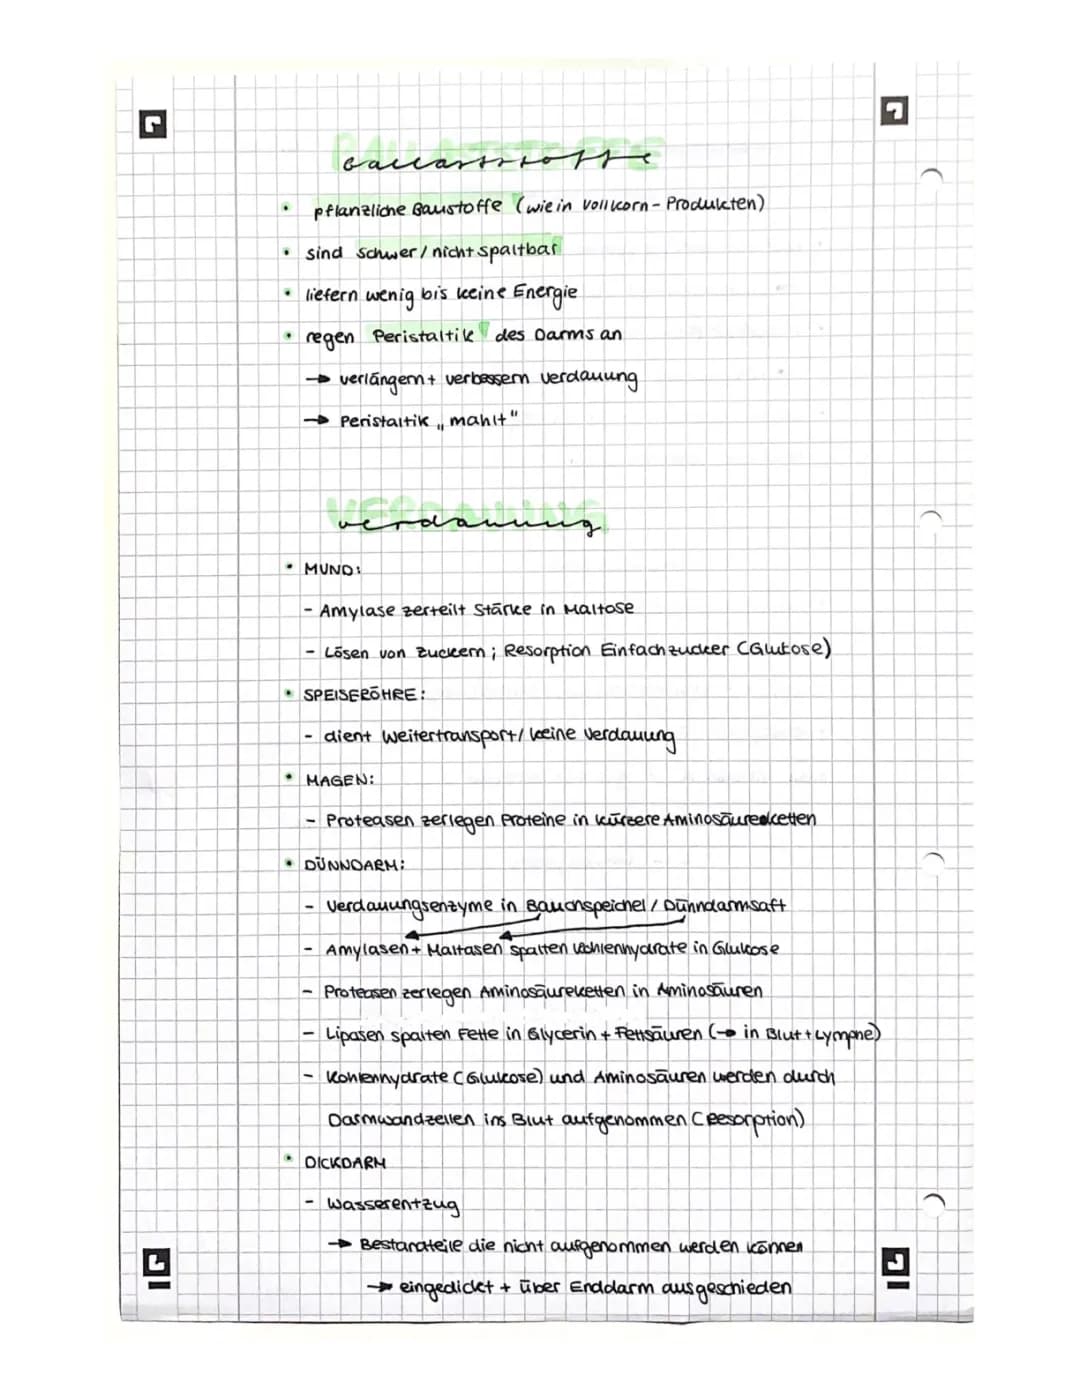 BALLASTSTOFFE
ballaststoffe
• pflanzliche Baustoffe (wie in Vollkorn-Produkten)
• sind schwer/nicht spaltbar
• liefern wenig bis keine Energie
• regen Peristaltik des Darms an
→ verlängern + verbessern Verdauung
→ Peristaltik „mahlt"
VERDAUUNG
verdauung
• MUND:
- Amylase zerteilt Stärke in Maltose
- Lösen von Zuckern; Resorption Einfachzucker (Glukose)
• SPEISERÖHRE:
- dient Weitertransport/keine Verdauung
• MAGEN:
- Proteasen zerlegen Proteine in kürzere Aminosäureketten
• DÜNNDARM:
- Verdauungsenzyme in Bauchspeichel / Dünndarmsaft
- Amylasen + Maltasen spalten Kohlenhydrate in Glukose
- Proteasen zerlegen Aminosäureketten in Aminosäuren
- Lipasen spalten Fette in Glycerin + Fettsäuren (→ in Blut + Lymphe)
- Kohlenhydrate (Glukose) und Aminosäuren werden durch
Darmwandzellen ins Blut aufgenommen (Resorption)
• DICKDARM
- Wasserentzug
→ Bestandteile die nicht aufgenommen werden können
→ eingedickt + über Enddarm ausgeschieden